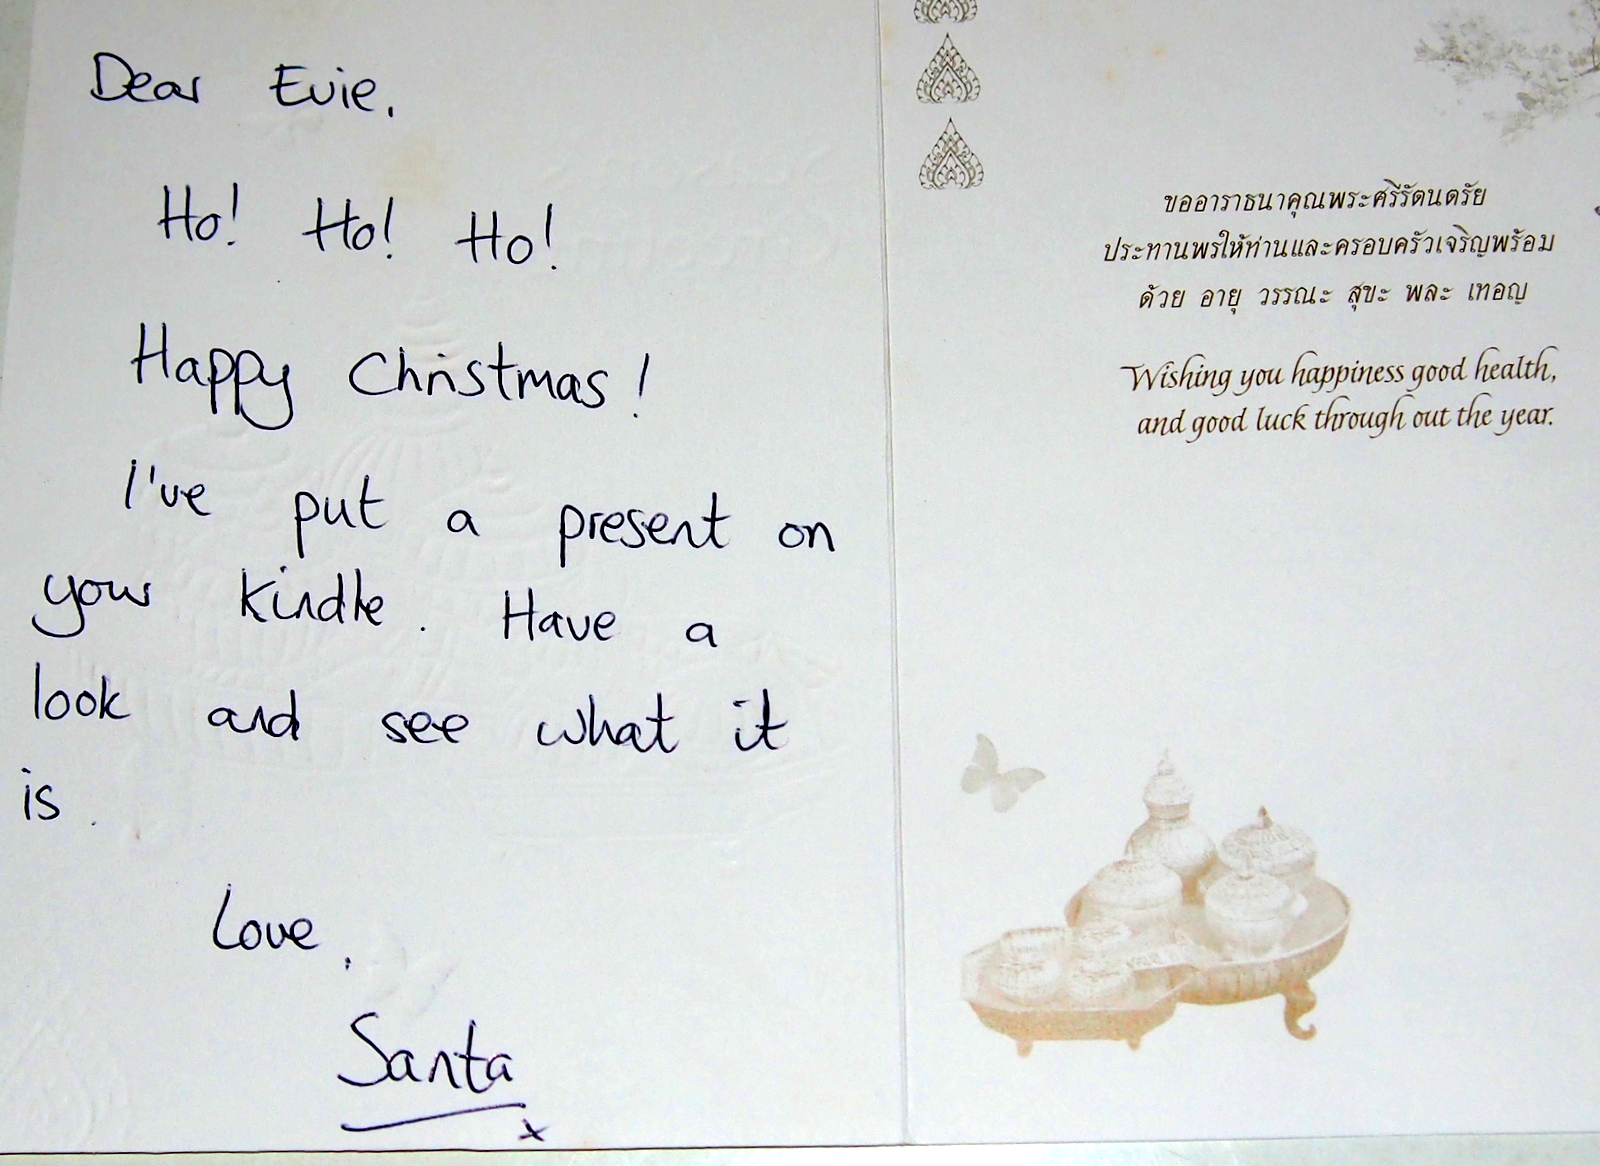 Dear Evie,
Ho! Ho! Ho!
Happy Christmas!
I've put a present on
your Kindle. Have a
look and see what it
is.
Love,
Santa
x
ขออาราธนาคุณพระศรีรัตนตรัย
ประทานพรให้ท่านและครอบครัวเจริญพร้อม
ด้วย อายุ วรรณะ สุขะ พละ เทอญ
Wishing you happiness good health,
and good luck through out the year.